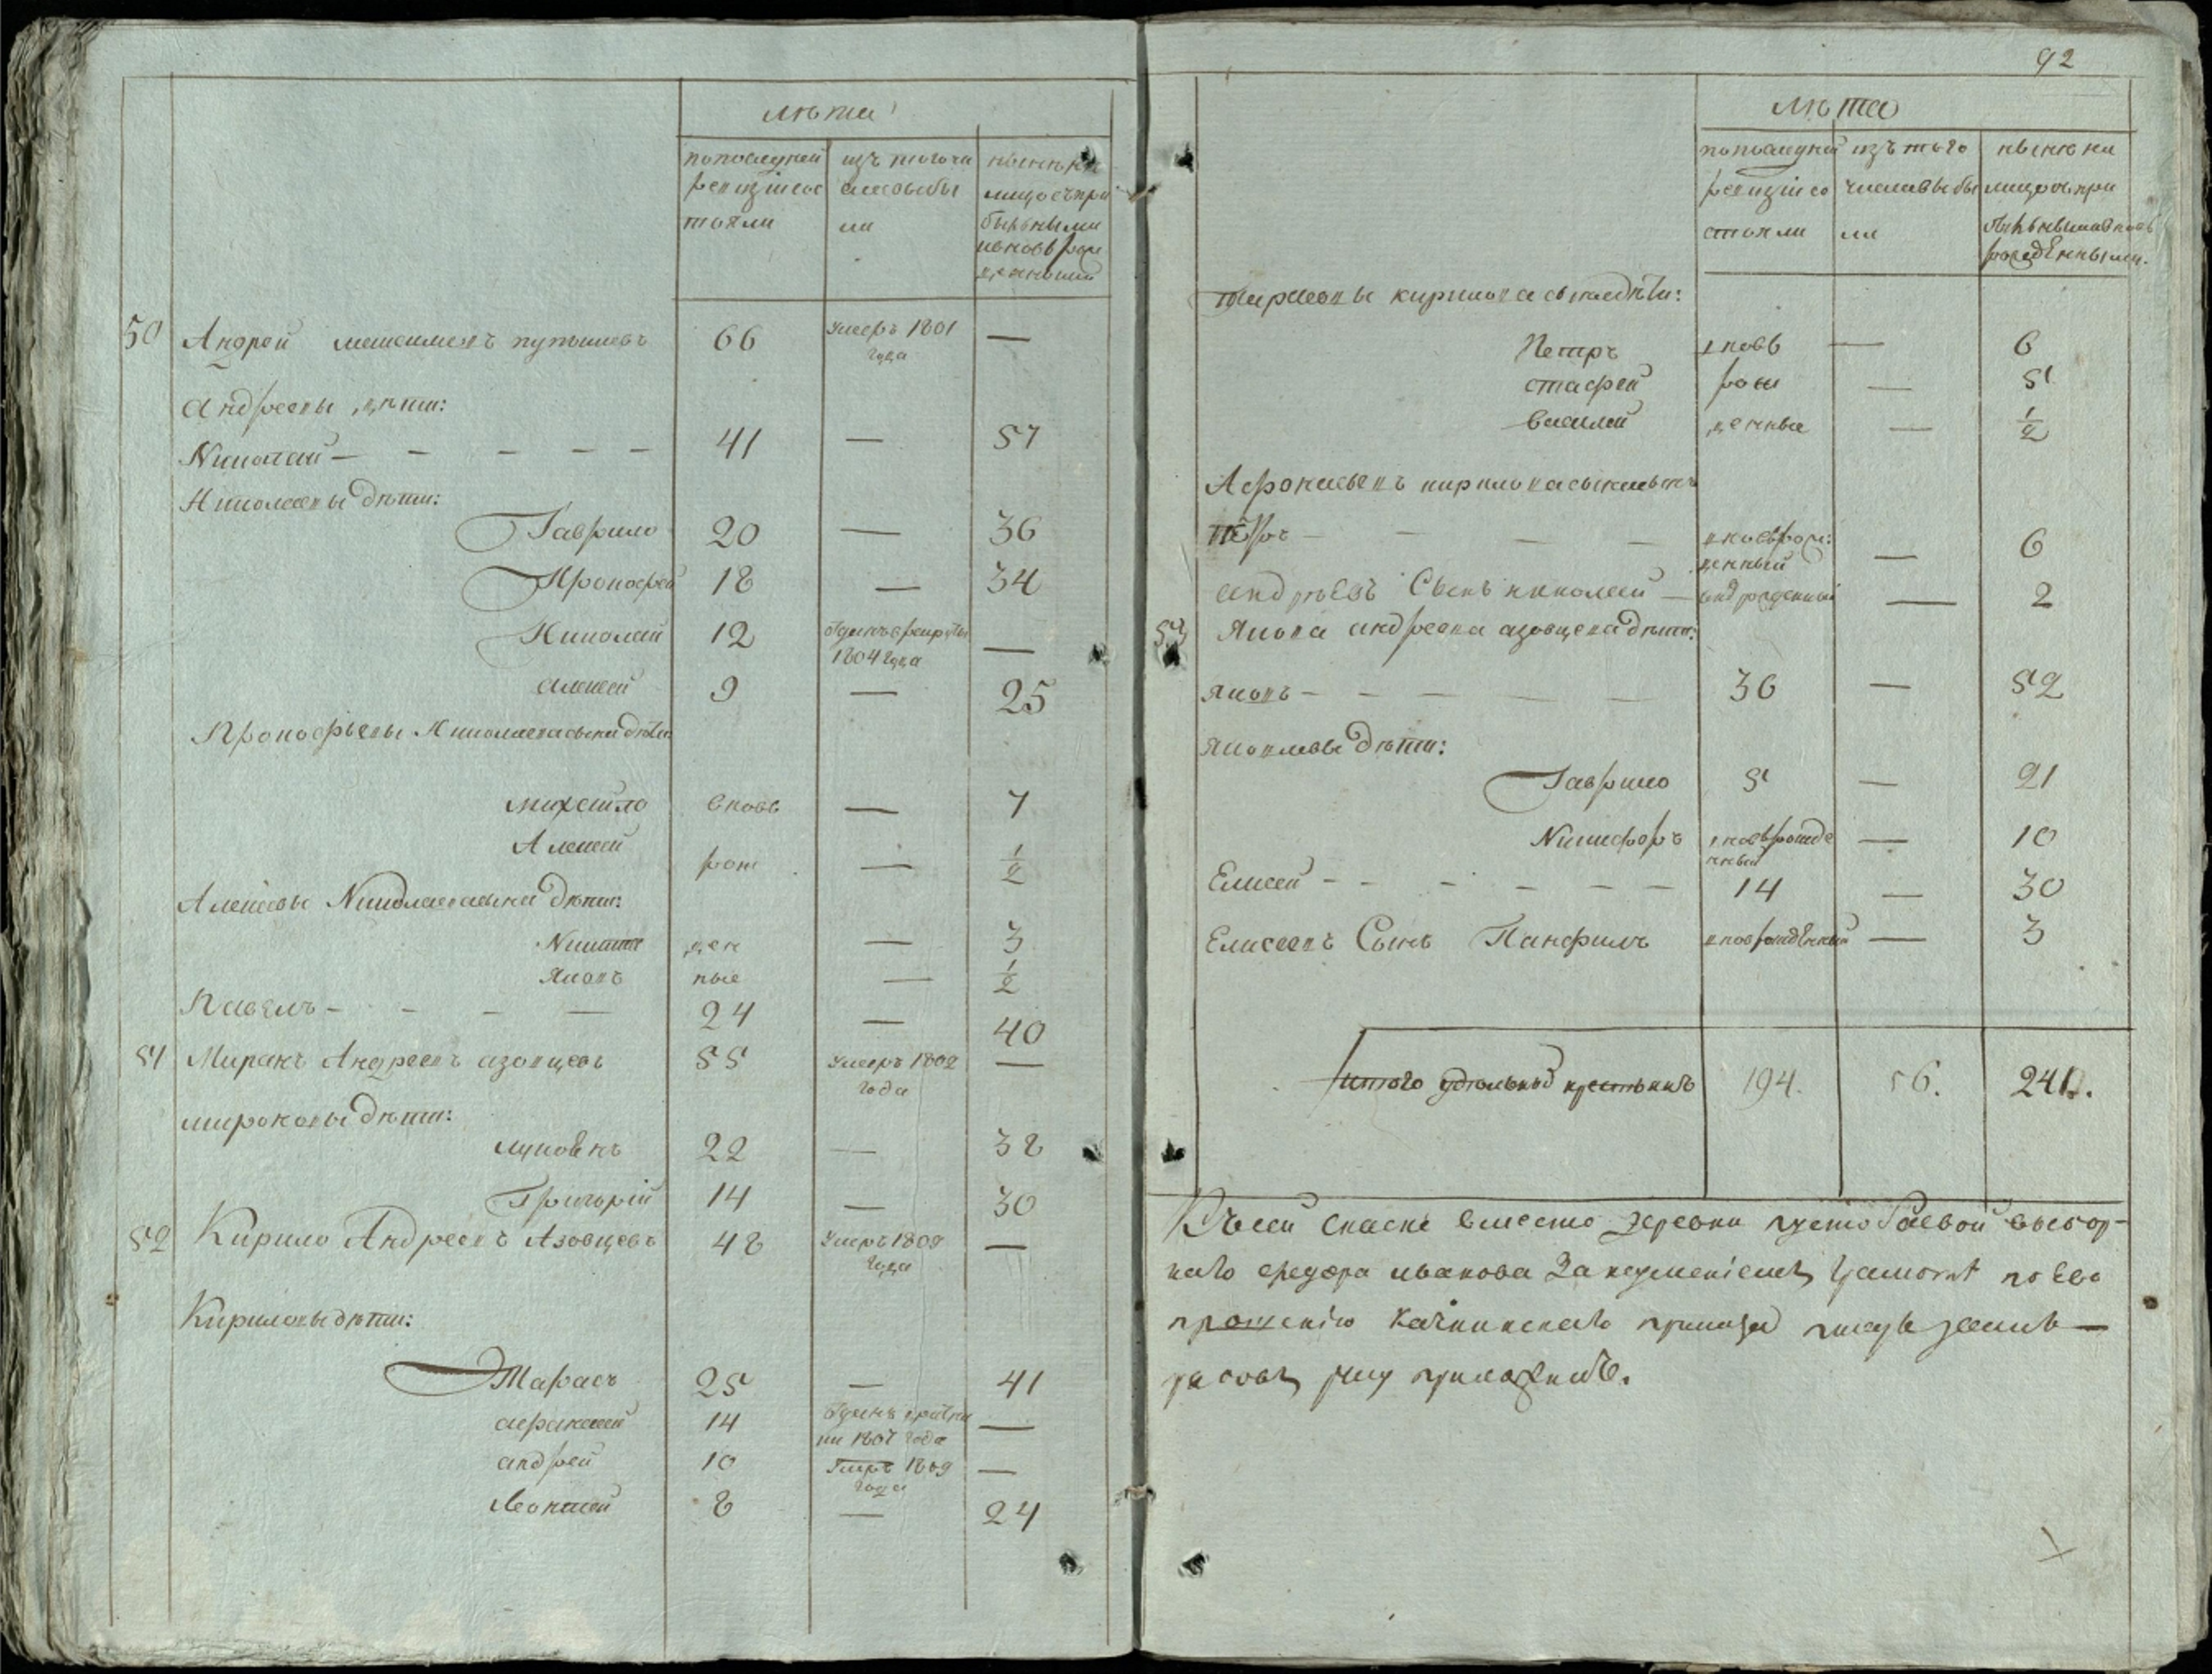 лѣта
попоследней
ревизіи сос
тояли
изъ того чи
сла выбы
ли
ныне на
лицо съ при
былыми
и вновь рож
денными
50 Андрей Максимовъ 66 умеръ 1801 года —
Андреевы дѣти:
Николай — — — — — 41 — 57
Николаевы дѣти:
Гаврило 20 — 36
Прокофей 18 — 34
Николай 12 отданъ в рекруты 1804 года —
Алексей 9 — 25
Прокофьевы Николаева сына дѣти
Михайло вновь — 7
Алексей рож — 1/2
Алексеевы Николаева сына дѣти:
Никита ден — 3
Яковъ ные — 1/2
Павелъ — — — — 24 — 40
51 Миронъ Андреевъ азовцевъ 55 умеръ 1802 года —
мироновы дѣти:
Луповнъ 22 — 38
Григорій 14 — 30
52 Кирило Андреевъ Азовцевъ 48 умеръ 1809 года —
Кириловы дѣти:
Тарасъ 25 — 41
афонасей 14 отданъ 1807 года —
андрей 10 умеръ 1809 года —
Леонтей 8 — 24
92
лѣта
попоследней
ревизіи со
стояли
изъ того
числа выбы
ли
ныне на
лицо съ при
былыми и вновь
рожденными.
Тарасовы кирилова сына дѣти:
Петръ вновь — 6
Стафей рож — 5
Василей денные — 1/2
Афонасьевъ кирилова сына сынъ
Петръ — — — — вновь рож: денный — 6
андрѣевъ Сынъ николай — вновь рожденный — 2
53 Якова андреева азовцева дѣти:
Яковъ — — — — — 36 — 52
Яковлевы дѣти:
Гаврило 5 — 21
Никифоръ вновь рожде нный — 10
Елисей — — — — — — 14 — 30
Елисеевъ Сынъ Панфилъ вновь рожденный — 3
Итого удѣльныхъ крестьянъ 194. 56. 241.
Къ сей скаске вместо деревни выбор-
наго федора иванова За неумениемъ грамоте по Ево
прошению приказа писарь
руку приложилъ.